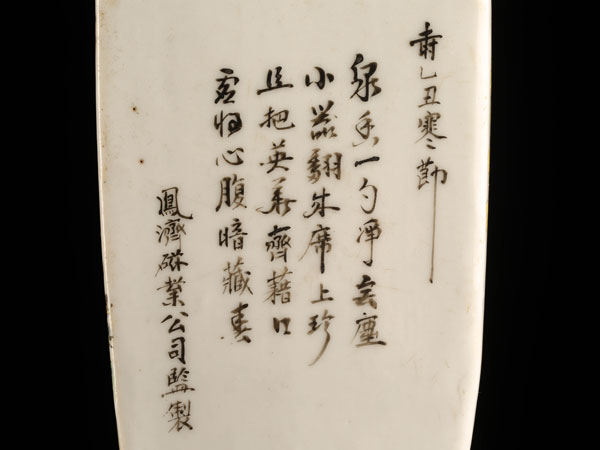 旹乙丑寒節
泉香一勺淨塵
小器翻成席上珍
且把英華齊藉口
虛將心腹暗藏春
鳳濟磁業公司監製